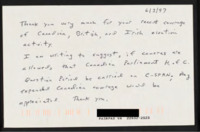 6/3/97
Thank you very much for your recent coverage
of Canadian, British, and Irish election
activity.
I am writing to suggest, if sources are
allowed, that Canadian Parliament H. of C.
Question Period be carried on C-SPAN, they
expanded Canadian coverage would be
appreciated. Thank you,